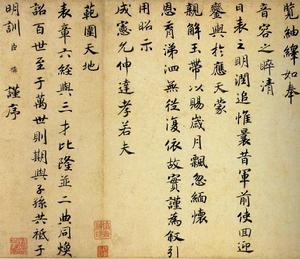 覽紬繹如奉
音容之晬清
日表之明潤追惟曩昔軍前使回迎
鑾輿於應天蒙
親解玉帶以賜歲月飄忽緬懷
恩育涕泗無從復依故實謹為敘引
用昭示
成憲允仰達孝若夫
範圍天地
表章六經與三才比隆並二典同煥
詔百世至于萬世則期與子孫共祗于
明訓臣構謹序